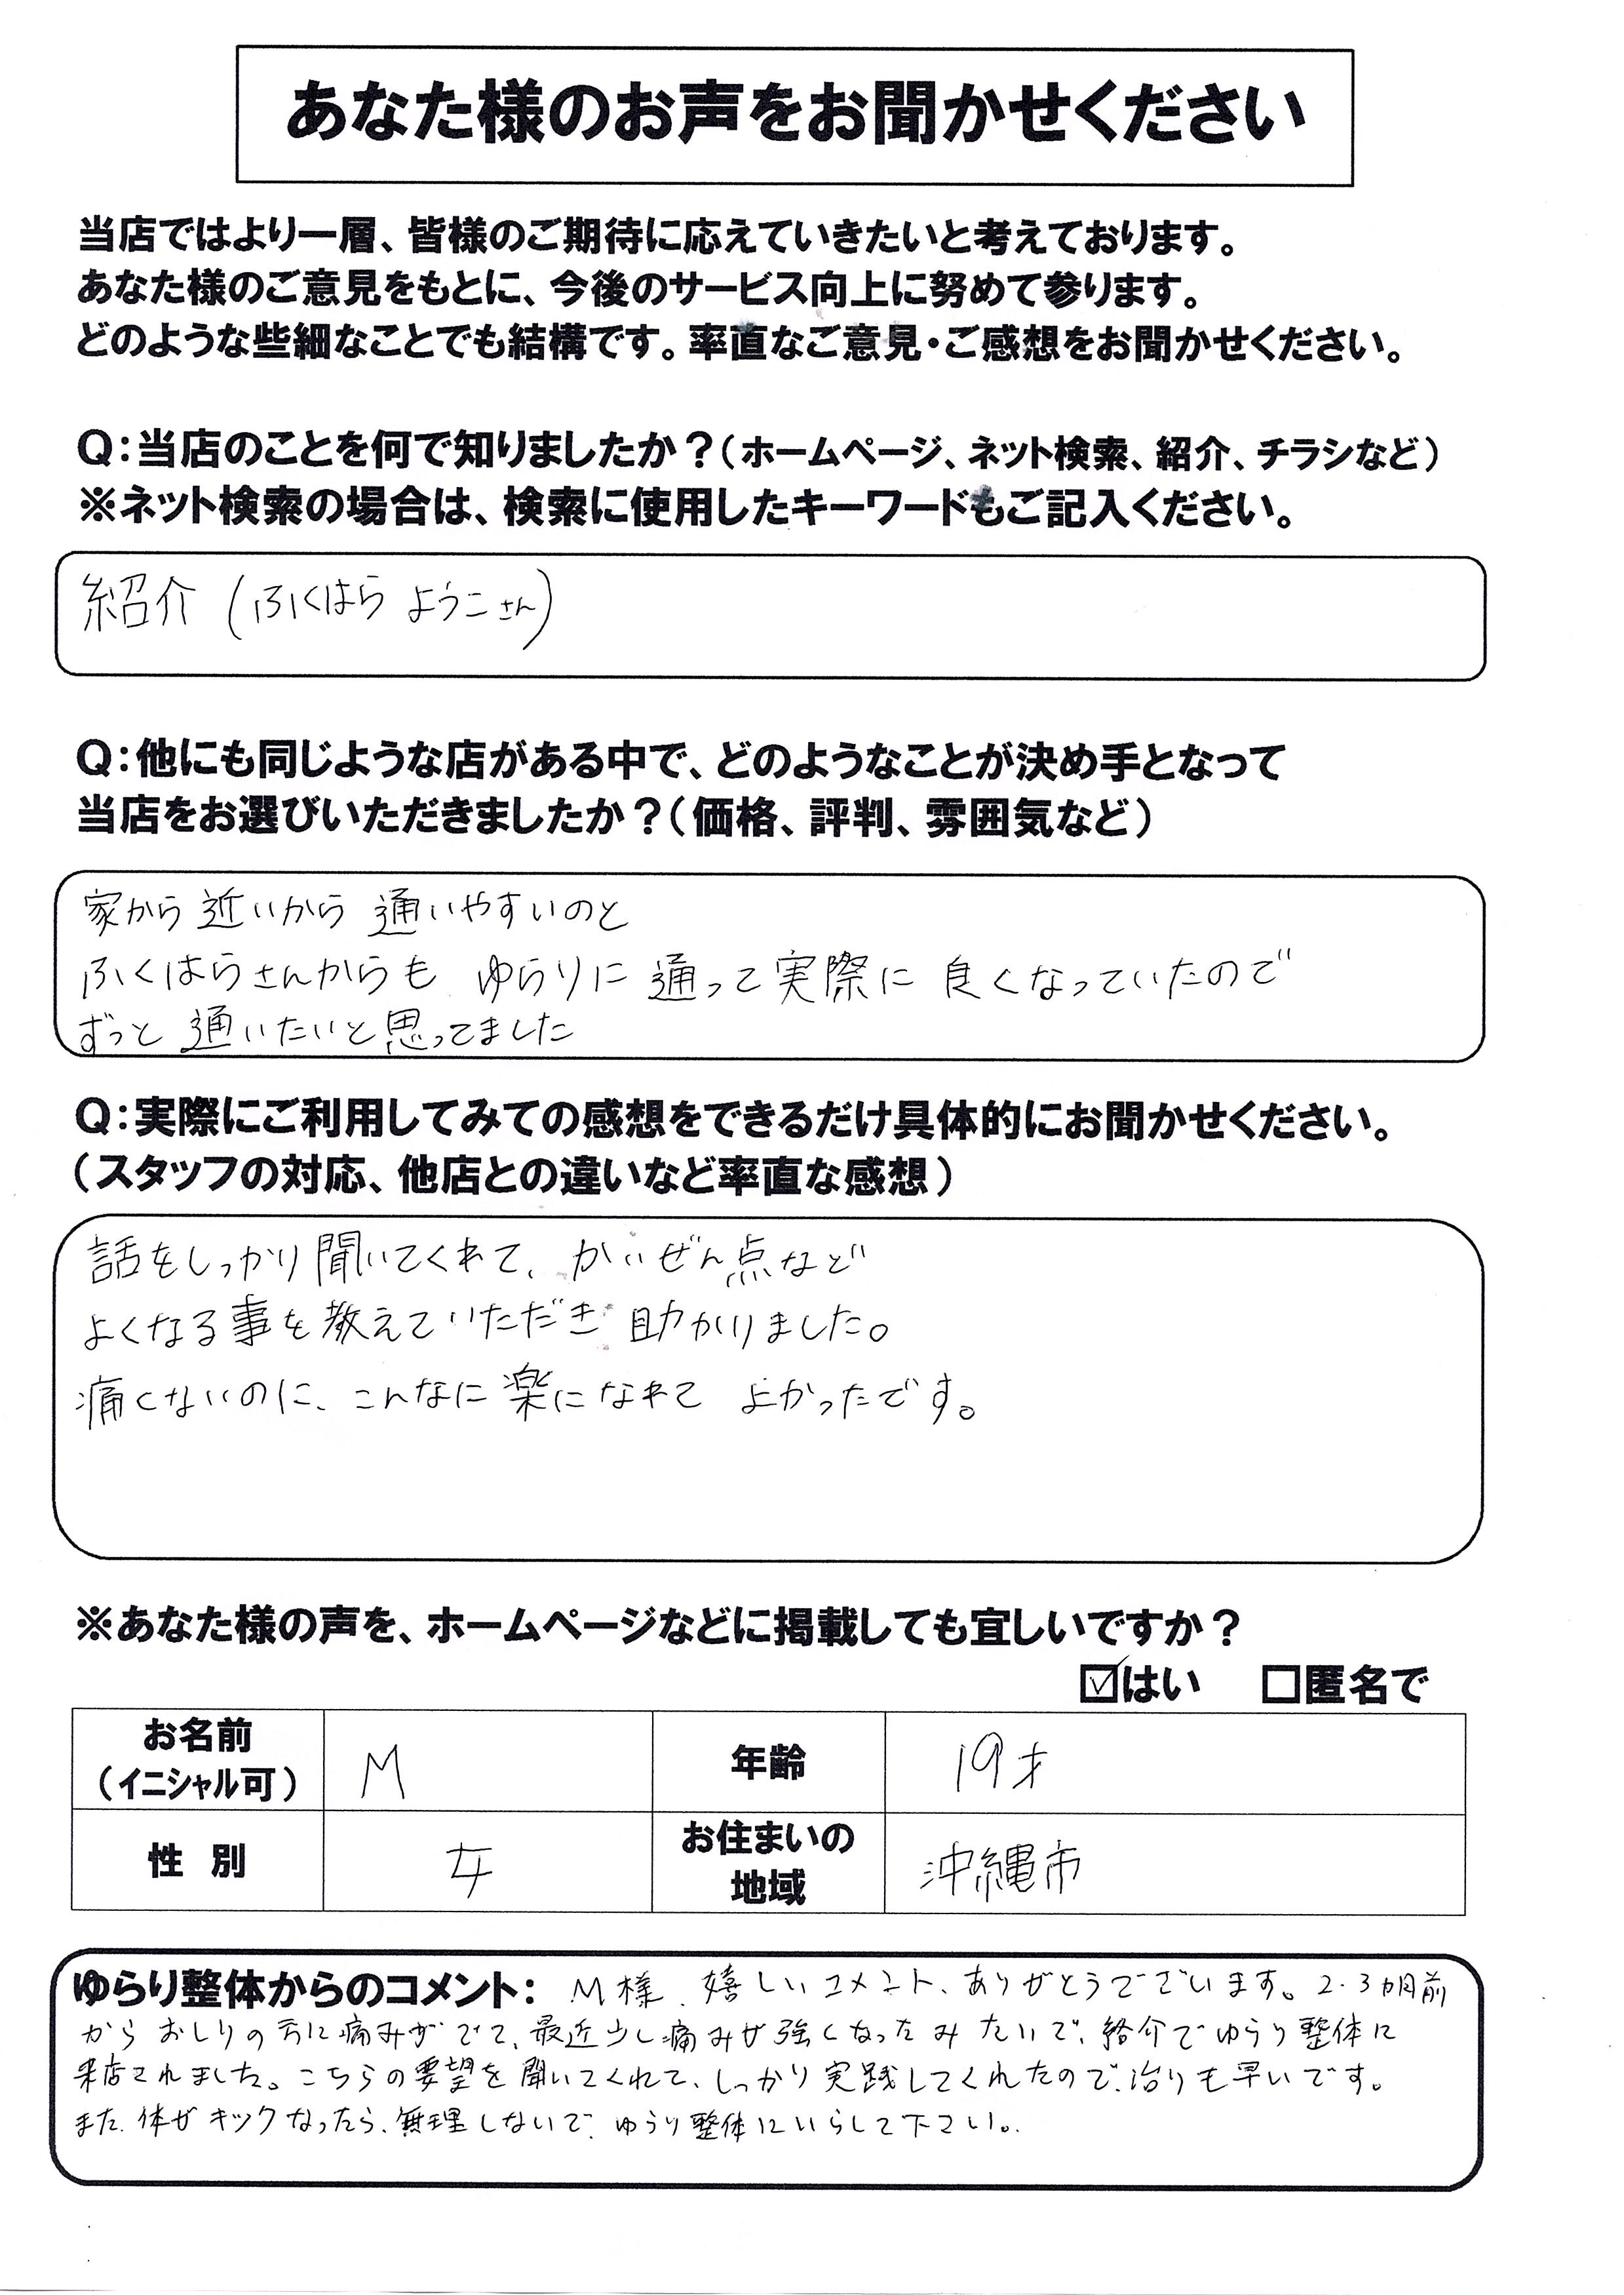 あなた様のお声をお聞かせください
当店ではより一層、皆様のご期待に応えていきたいと考えております。
あなた様のご意見をもとに、今後のサービス向上に努めて参ります。
どのような些細なことでも結構です。率直なご意見・ご感想をお聞かせください。
Q:当店のことを何で知りましたか？(ホームページ、ネット検索、紹介、チラシなど)
※ネット検索の場合は、検索に使用したキーワードもご記入ください。
紹介 (ふくはら ようこさん)
Q:他にも同じような店がある中で、どのようなことが決め手となって
当店をお選びいただきましたか？(価格、評判、雰囲気など)
家から近いから 通いやすいのと
ふくはらさんからも ゆらりに 通って実際に 良くなっていたので
ずっと 通いたいと思ってました
Q:実際にご利用してみての感想をできるだけ具体的にお聞かせください。
(スタッフの対応、他店との違いなど率直な感想)
話をしっかり聞いてくれて、かいぜん点など
よくなる事を教えていただき 助かりました。
痛くないのに、こんなに楽になれて よかったです。
※あなた様の声を、ホームページなどに掲載しても宜しいですか？
☑はい □匿名で
お名前
(イニシャル可) M 年齢 19才
性別 女 お住まいの
地域 沖縄市
ゆらり整体からのコメント: M様、嬉しいコメント、ありがとうございます。2・3ヵ月前
からおしりの方に痛みがでて、最近少し痛みが強くなったみたいで、紹介でゆらり整体に
来店されました。こちらの要望を聞いてくれて、しっかり実践してくれたので、治りも早いです。
また、体がキツくなったら、無理しないで、ゆらり整体にいらして下さい。